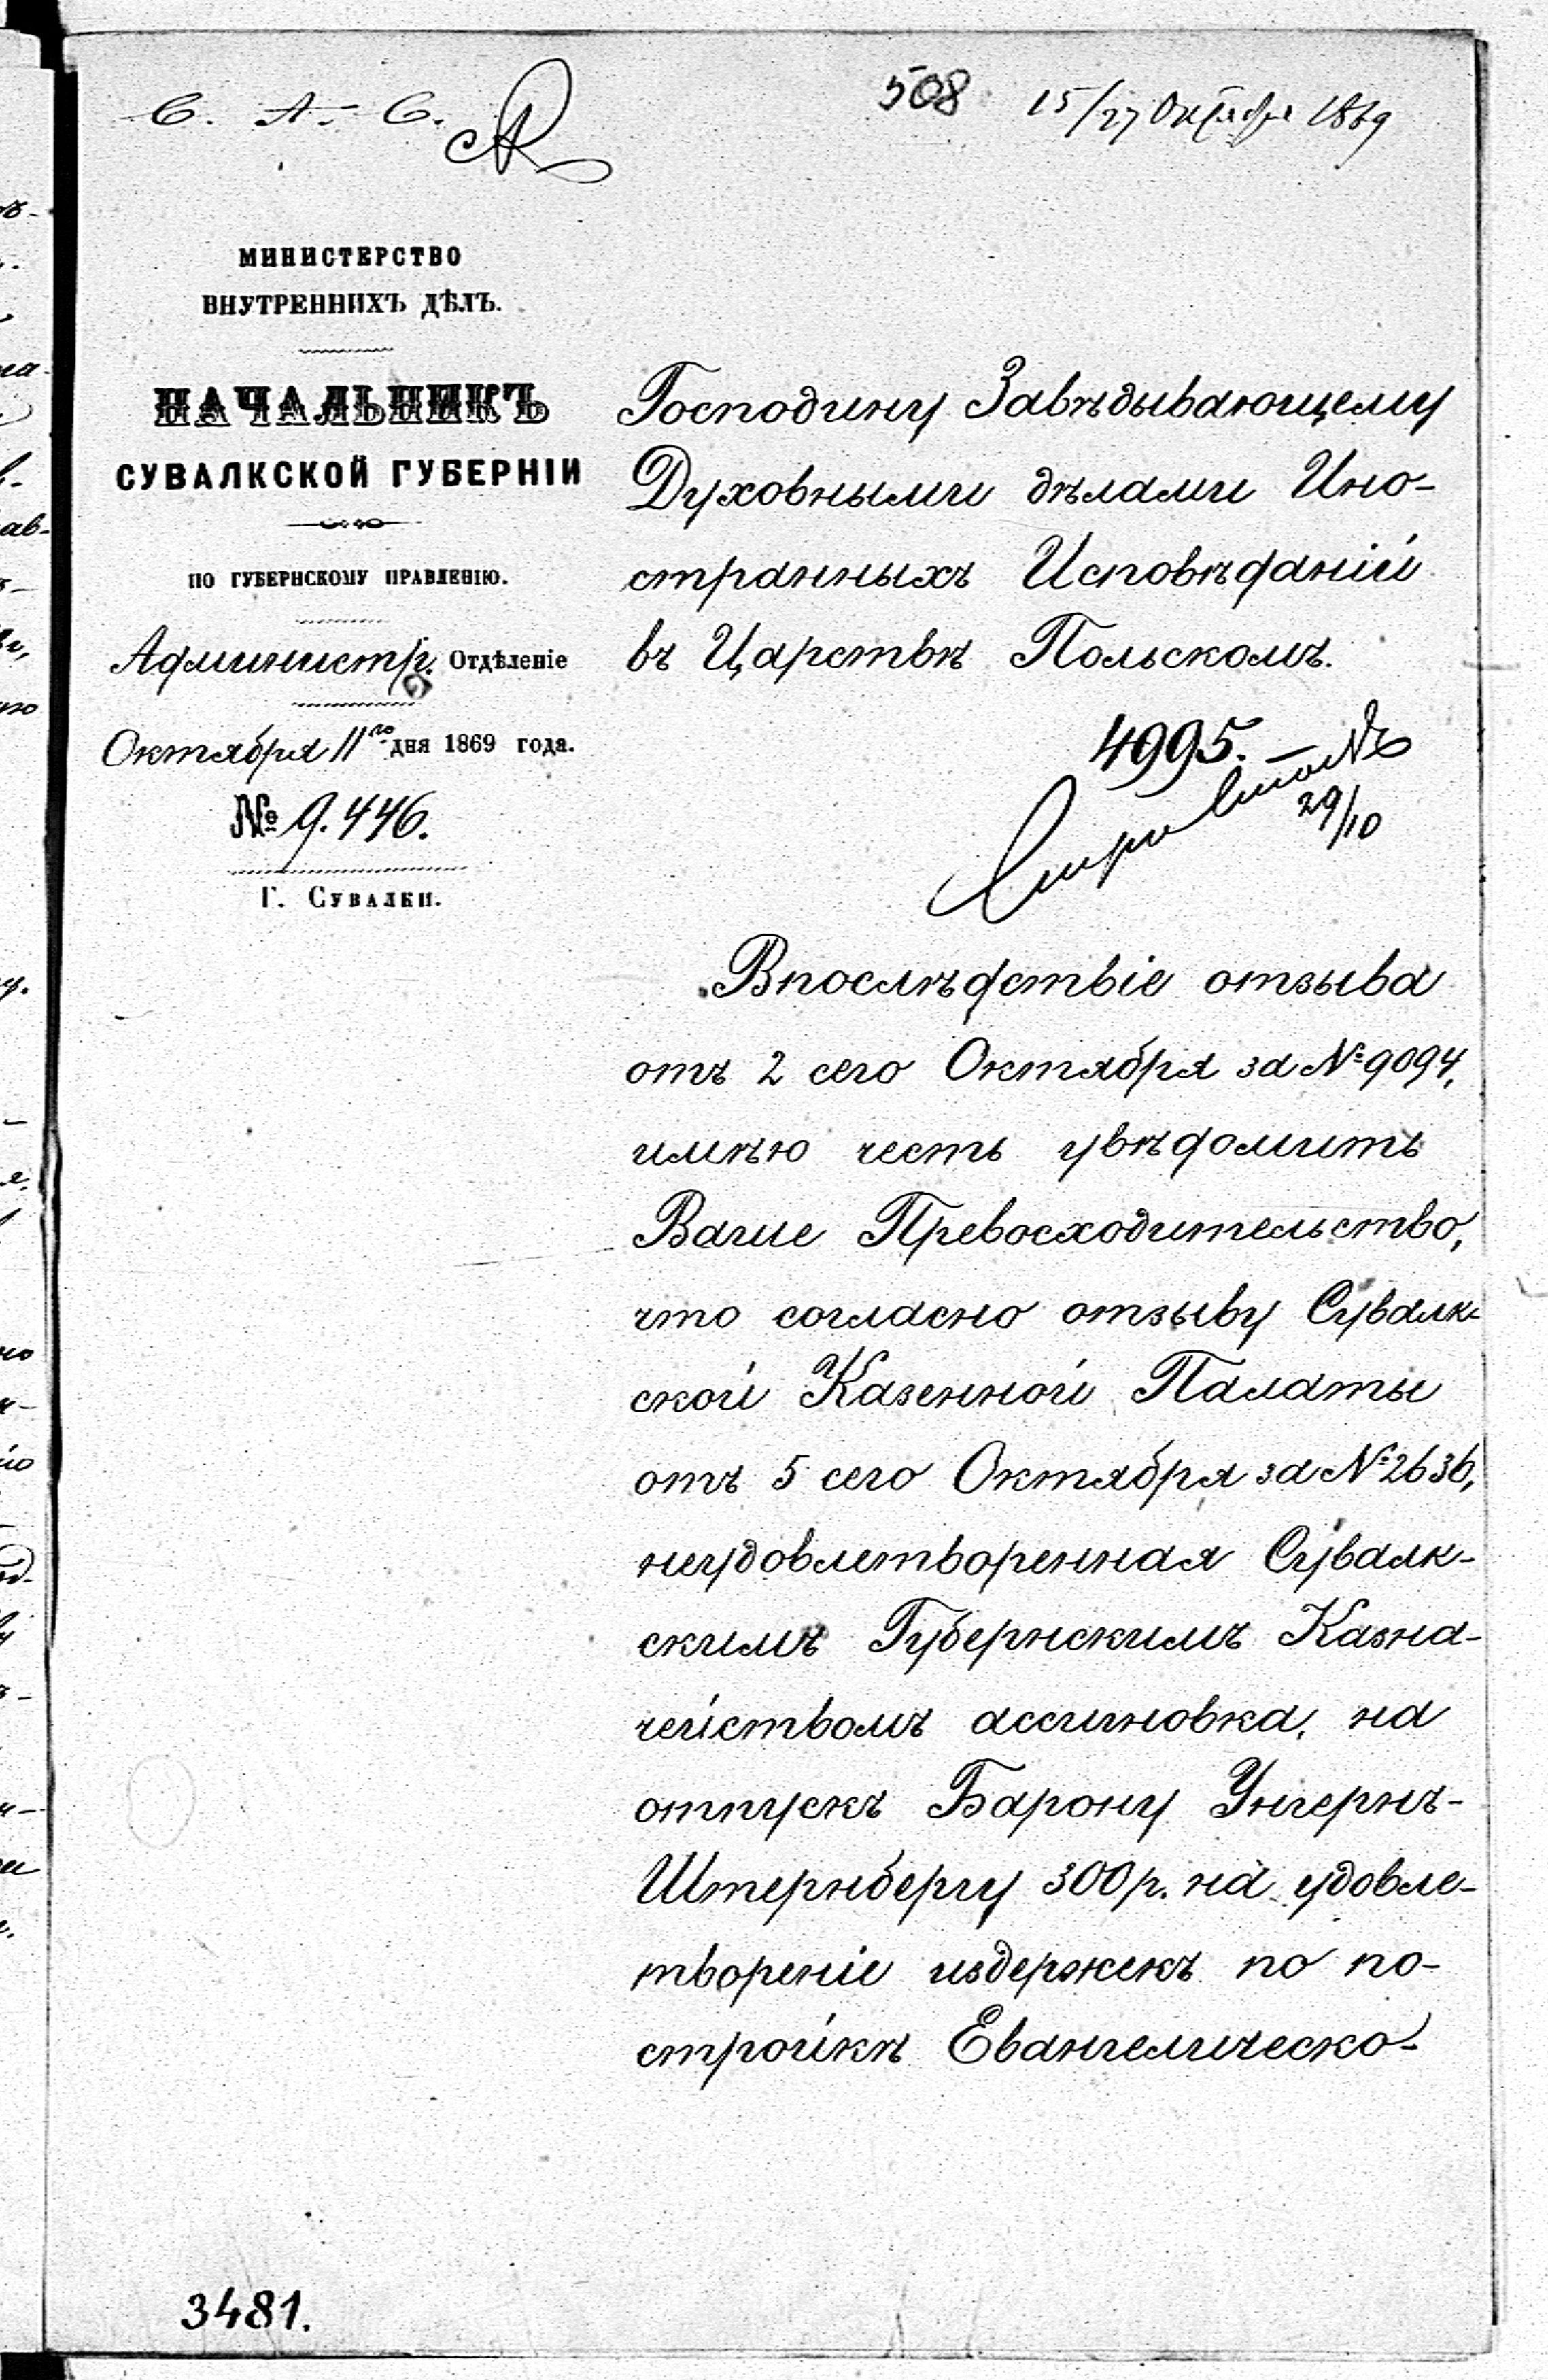 С. А. С.
508
15/27 Октября 1869
МИНИСТЕРСТВО
ВНУТРЕННИХЪ ДѢЛЪ.
НАЧАЛЬНИКЪ
СУВАЛКСКОЙ ГУБЕРНІИ
ПО ГУБЕРНСКОМУ ПРАВЛЕНІЮ.
Администр. Отдѣленіе
Октября 11го дня 1869 года.
№ 9.446.
Г. Сувалки.
Господину Завѣдывающему
Духовными дѣлами Ино-
странныхъ Исповѣданій
въ Царствѣ Польскомъ.
4995.
29/10
Впослѣдствіе отзыва
отъ 2 сего Октября за № 9094,
имѣю честь увѣдомить
Ваше Превосходительство,
что согласно отзыву Сувалк-
ской Казенной Палаты
отъ 5 сего Октября за № 2636,
неудовлетворенная Сувалк-
скимъ Губернскимъ Казна-
чействомъ ассигновка, на
отпускъ Барону Унгернъ-
Штернбергу 300 р. на удовле-
твореніе издержекъ по по-
стройкѣ Евангелическо-
3481.